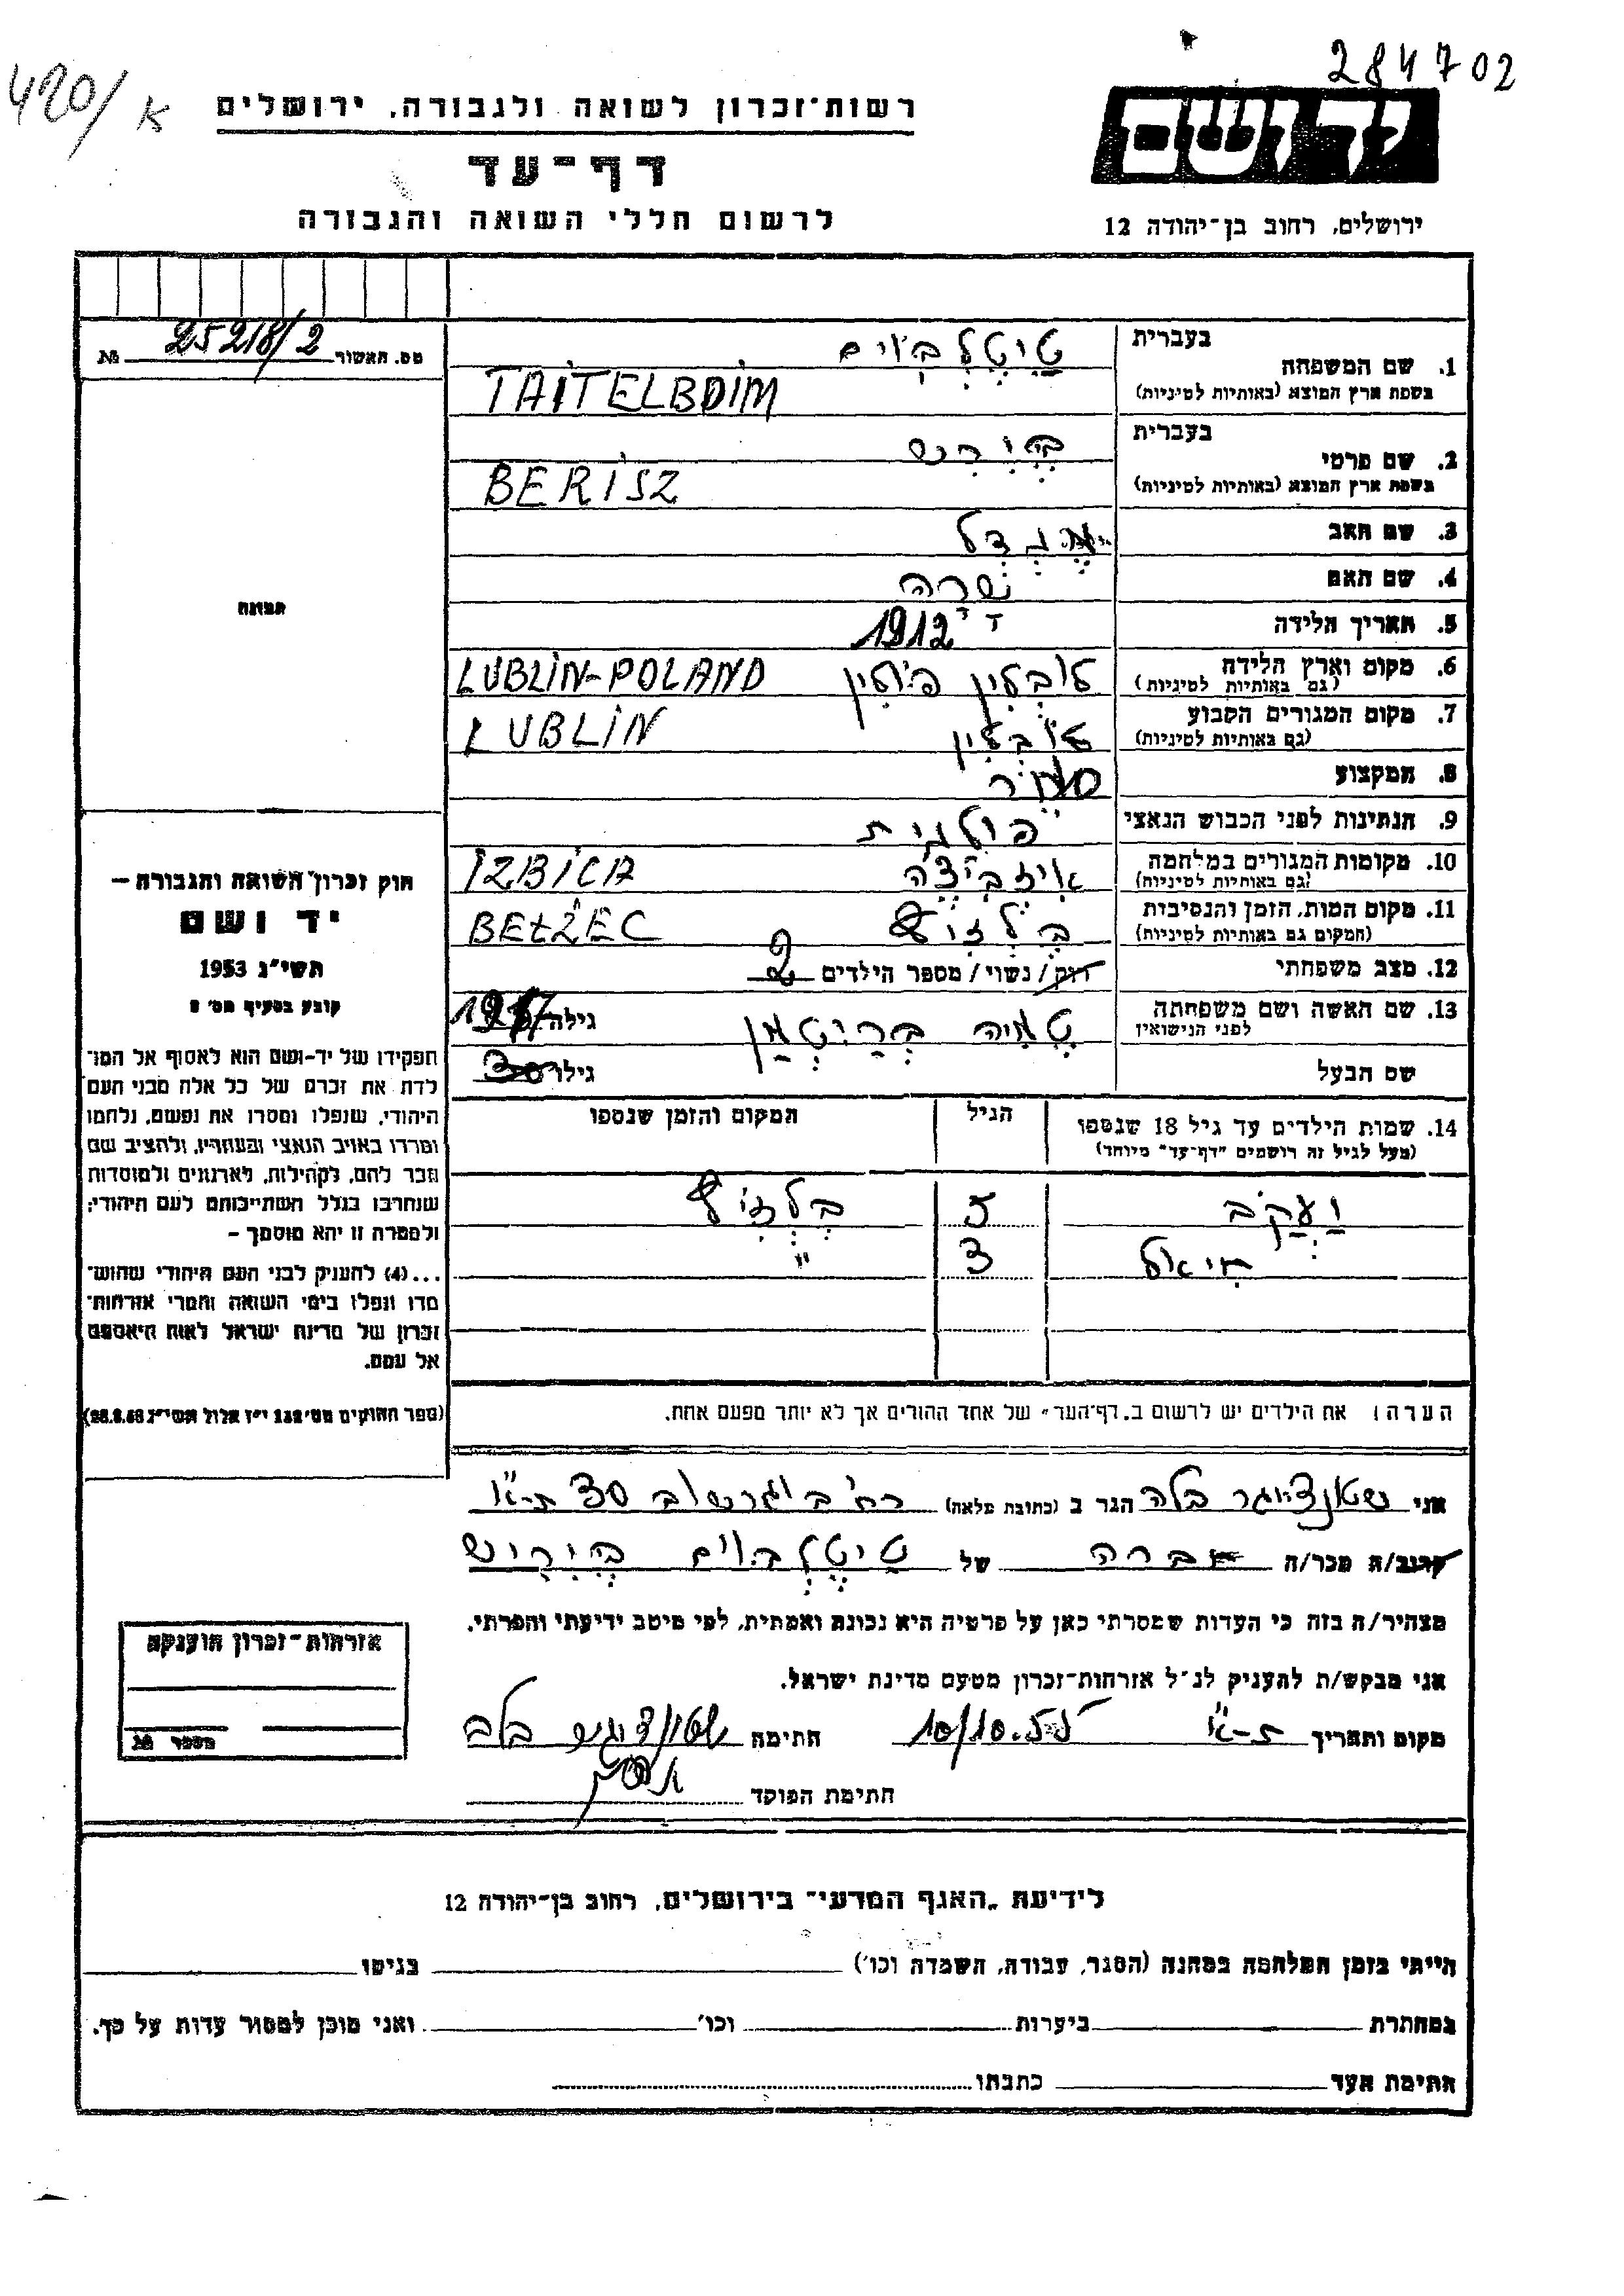 284702
420/א
יד ושם
רשות־זכרון לשואה ולגבורה, ירושלים
דף־עד
לרשום חללי השואה והגבורה
ירושלים, רחוב בן־יהודה 12
מס. האשור 25218/2 №
1. שם המשפחה בעברית טיטלבוים
בשפת ארץ המוצא (באותיות לטיניות) TAITELBOIM
2. שם פרטי בעברית בירש
בשפת ארץ המוצא (באותיות לטיניות) BERISZ
3. שם האב
4. שם האם שרה
5. תאריך הלידה 1912
6. מקום וארץ הלידה (גם באותיות לטיניות) לובלין פולין LUBLIN-POLAND
7. מקום המגורים הקבוע (גם באותיות לטיניות) לובלין LUBLIN
8. המקצוע סוחר
9. הנתינות לפני הכבוש הנאצי פולנית
10. מקומות המגורים במלחמה (גם באותיות לטיניות) איזביצה IZBICA
11. מקום המות, הזמן והנסיבות (המקום גם באותיות לטיניות) BEŁŻEC
12. מצב משפחתי רוק/נשוי/מספר הילדים 2
13. שם האשה ושם משפחתה לפני הנישואין גילה
שם הבעל גילו
14. שמות הילדים עד גיל 18 שנספו הגיל המקום והזמן שנספו
(מעל לגיל זה רושמים "דף־עד" מיוחד)
יעקב 5
חיאל 3 "
הערה: את הילדים יש לרשום ב„דף־העד" של אחד ההורים אך לא יותר מפעם אחת.
אני בלה הגר ב (כתובת מלאה) רח' בוגרשוב 30 ת-א
קרוב/ה מכר/ה חברה של טיטלבוים בירש
מצהיר/ה בזה כי העדות שמסרתי כאן על פרטיה היא נכונה ואמתית, לפי מיטב ידיעתי והכרתי.
אני מבקש/ת להעניק לנ"ל אזרחות־זכרון מטעם מדינת ישראל.
מקום ותאריך ת-א 10/10.55 חתימה
חתימת הפוקד
תמונה
חוק זכרון השואה והגבורה —
יד ושם
תשי"ג 1953
קובע בסעיף מס' 2
תפקידו של יד-ושם הוא לאסוף אל המו־
לדת את זכרם של כל אלה מבני העם
היהודי, שנפלו ומסרו את נפשם, נלחמו
ומרדו באויב הנאצי ובעוזריו, ולהציב שם
וזכר להם, לקהילות, לארגונים ולמוסדות
שנחרבו בגלל השתייכותם לעם היהודי;
ולמטרה זו יהא מוסמך —
...(4) להעניק לבני העם היהודי שהוש־
מדו ונפלו בימי השואה והמרי אזרחות־
זכרון של מדינת ישראל לאות היאספם
אל עמם.
(ספר החוקים מס' 132 י"ז אלול תשי"ג 28.8.53)
אזרחות־זכרון הוענקה
מספר №
לידיעת „האגף המדעי" בירושלים, רחוב בן־יהודה 12
הייתי בזמן המלחמה במחנה (הסגר, עבודה, השמדה וכו') בגיטו
במחתרת ביערות וכו' ואני מוכן למסור עדות על כך.
חתימת העד כתבתו